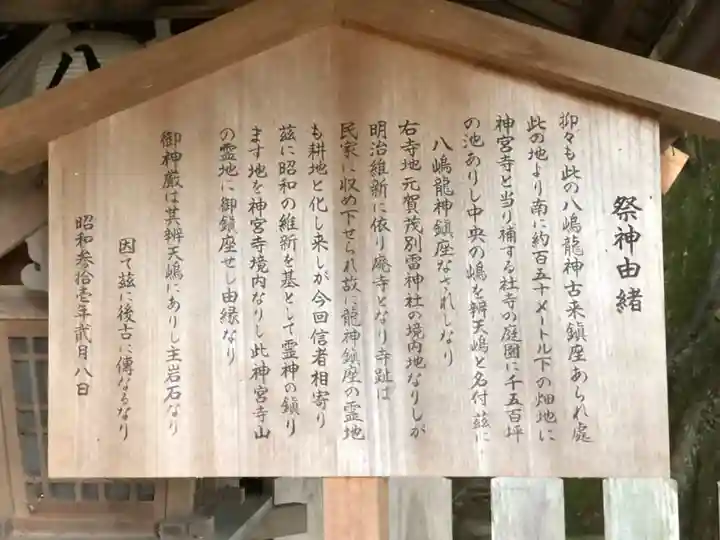 祭神由緒
抑々も此の八嶋龍神古来鎮座あられ處
此の地より南に約百五十メートル下の畑地に
神宮寺と当り補する社寺の庭園に千五百坪
の池ありし中央の嶋を辨天嶋と名付茲に
八嶋龍神鎮座なされしなり
右寺地元賀茂別雷神社の境内地なりしが
明治維新に依り廃寺となり寺趾は
民家に収め下せられ故に龍神鎮座の霊地
も耕地と化し来しが今回信者相寄り
茲に昭和の維新を基として霊神の鎮り
ます地を神宮寺境内なりし此神宮寺山
の霊地に御鎮座せし由縁なり
御神厳は其辨天嶋にありし主岩石なり
因て茲に後古に傳なるなり
昭和参拾壱年弐月八日
八